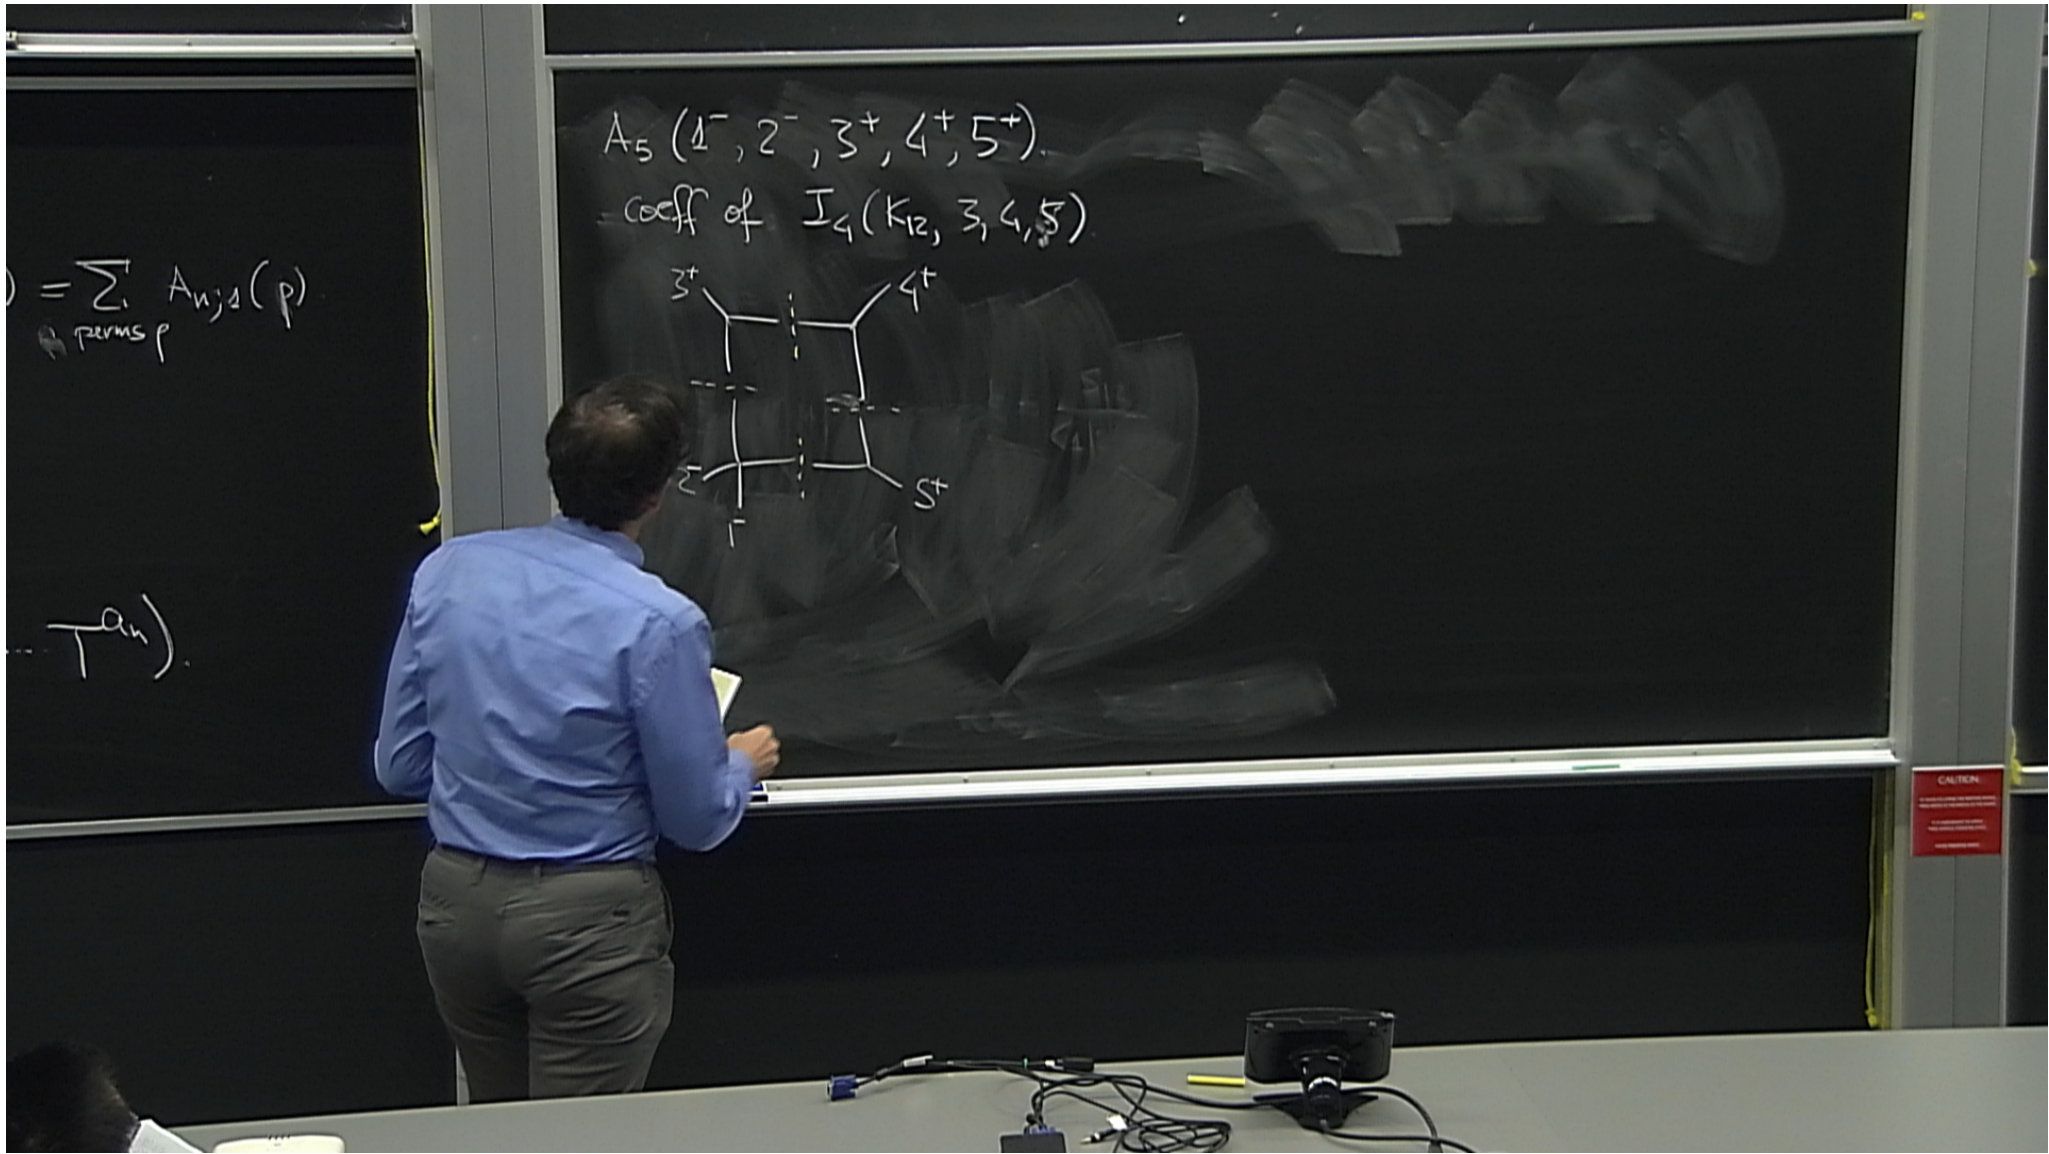 ) = Σ A_{n;1}(p)
perms p
... T^{a_n}).
A_5 (1^-, 2^-, 3^+, 4^+, 5^+).
coeff of I_4(K_{12}, 3, 4, 5)
3^+ 4^+
2^- 5^+
1^-
CAUTION